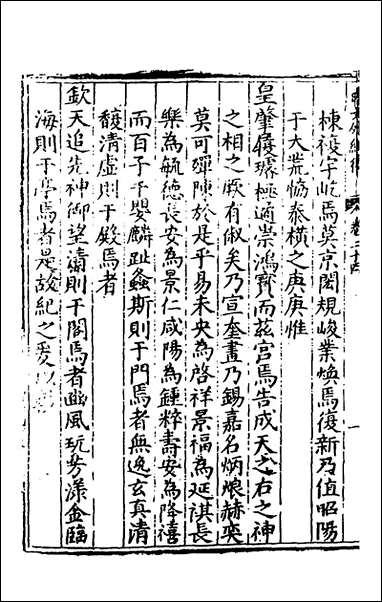 棟複宇屹焉莫京閎規峻業煥焉復新乃值昭陽
于大荒協泰横之庚庚惟
皇肇癈璿極適崇鴻寳而兹宫焉告成天之右之神
之相之厥有俶矣乃宣奎畫乃錫嘉名炳烺赫奕
莫可殫陳於是平易未央為啓祥景福為延祺長
樂為毓德長安為景仁咸陽為鍾粹壽安為降禧
而百子千嬰麟趾螽斯則于門焉者無逸玄真清
馥清虚則于殿焉者
欽天追先神御望瀛則于閣焉者豳風玩芳漾金臨
海則于亭焉者是故紀之爰